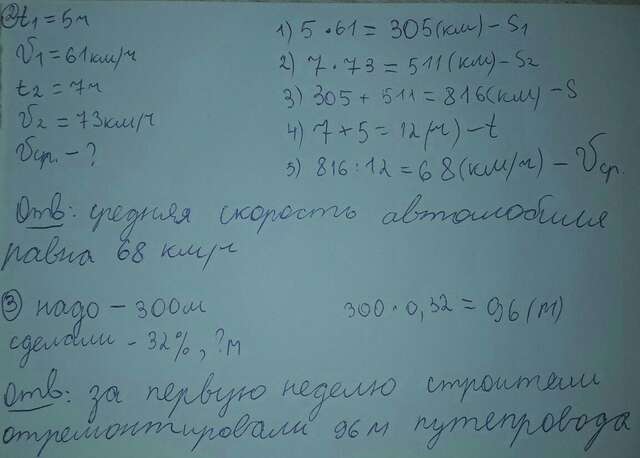 ② t₁ = 5ч
V₁ = 61 км/ч
t₂ = 7ч
V₂ = 73 км/ч
Vср. - ?
1) 5 · 61 = 305 (км) - S₁
2) 7 · 73 = 511 (км) - S₂
3) 305 + 511 = 816 (км) - S
4) 7 + 5 = 12 (ч) - t
5) 816 : 12 = 68 (км/ч) - Vср.
Отв: средняя скорость автомобиля
равна 68 км/ч
③ надо - 300м
сделали - 32%, ?м
300 · 0,32 = 96 (м)
Отв: за первую неделю строители
отремонтировали 96м путепровода